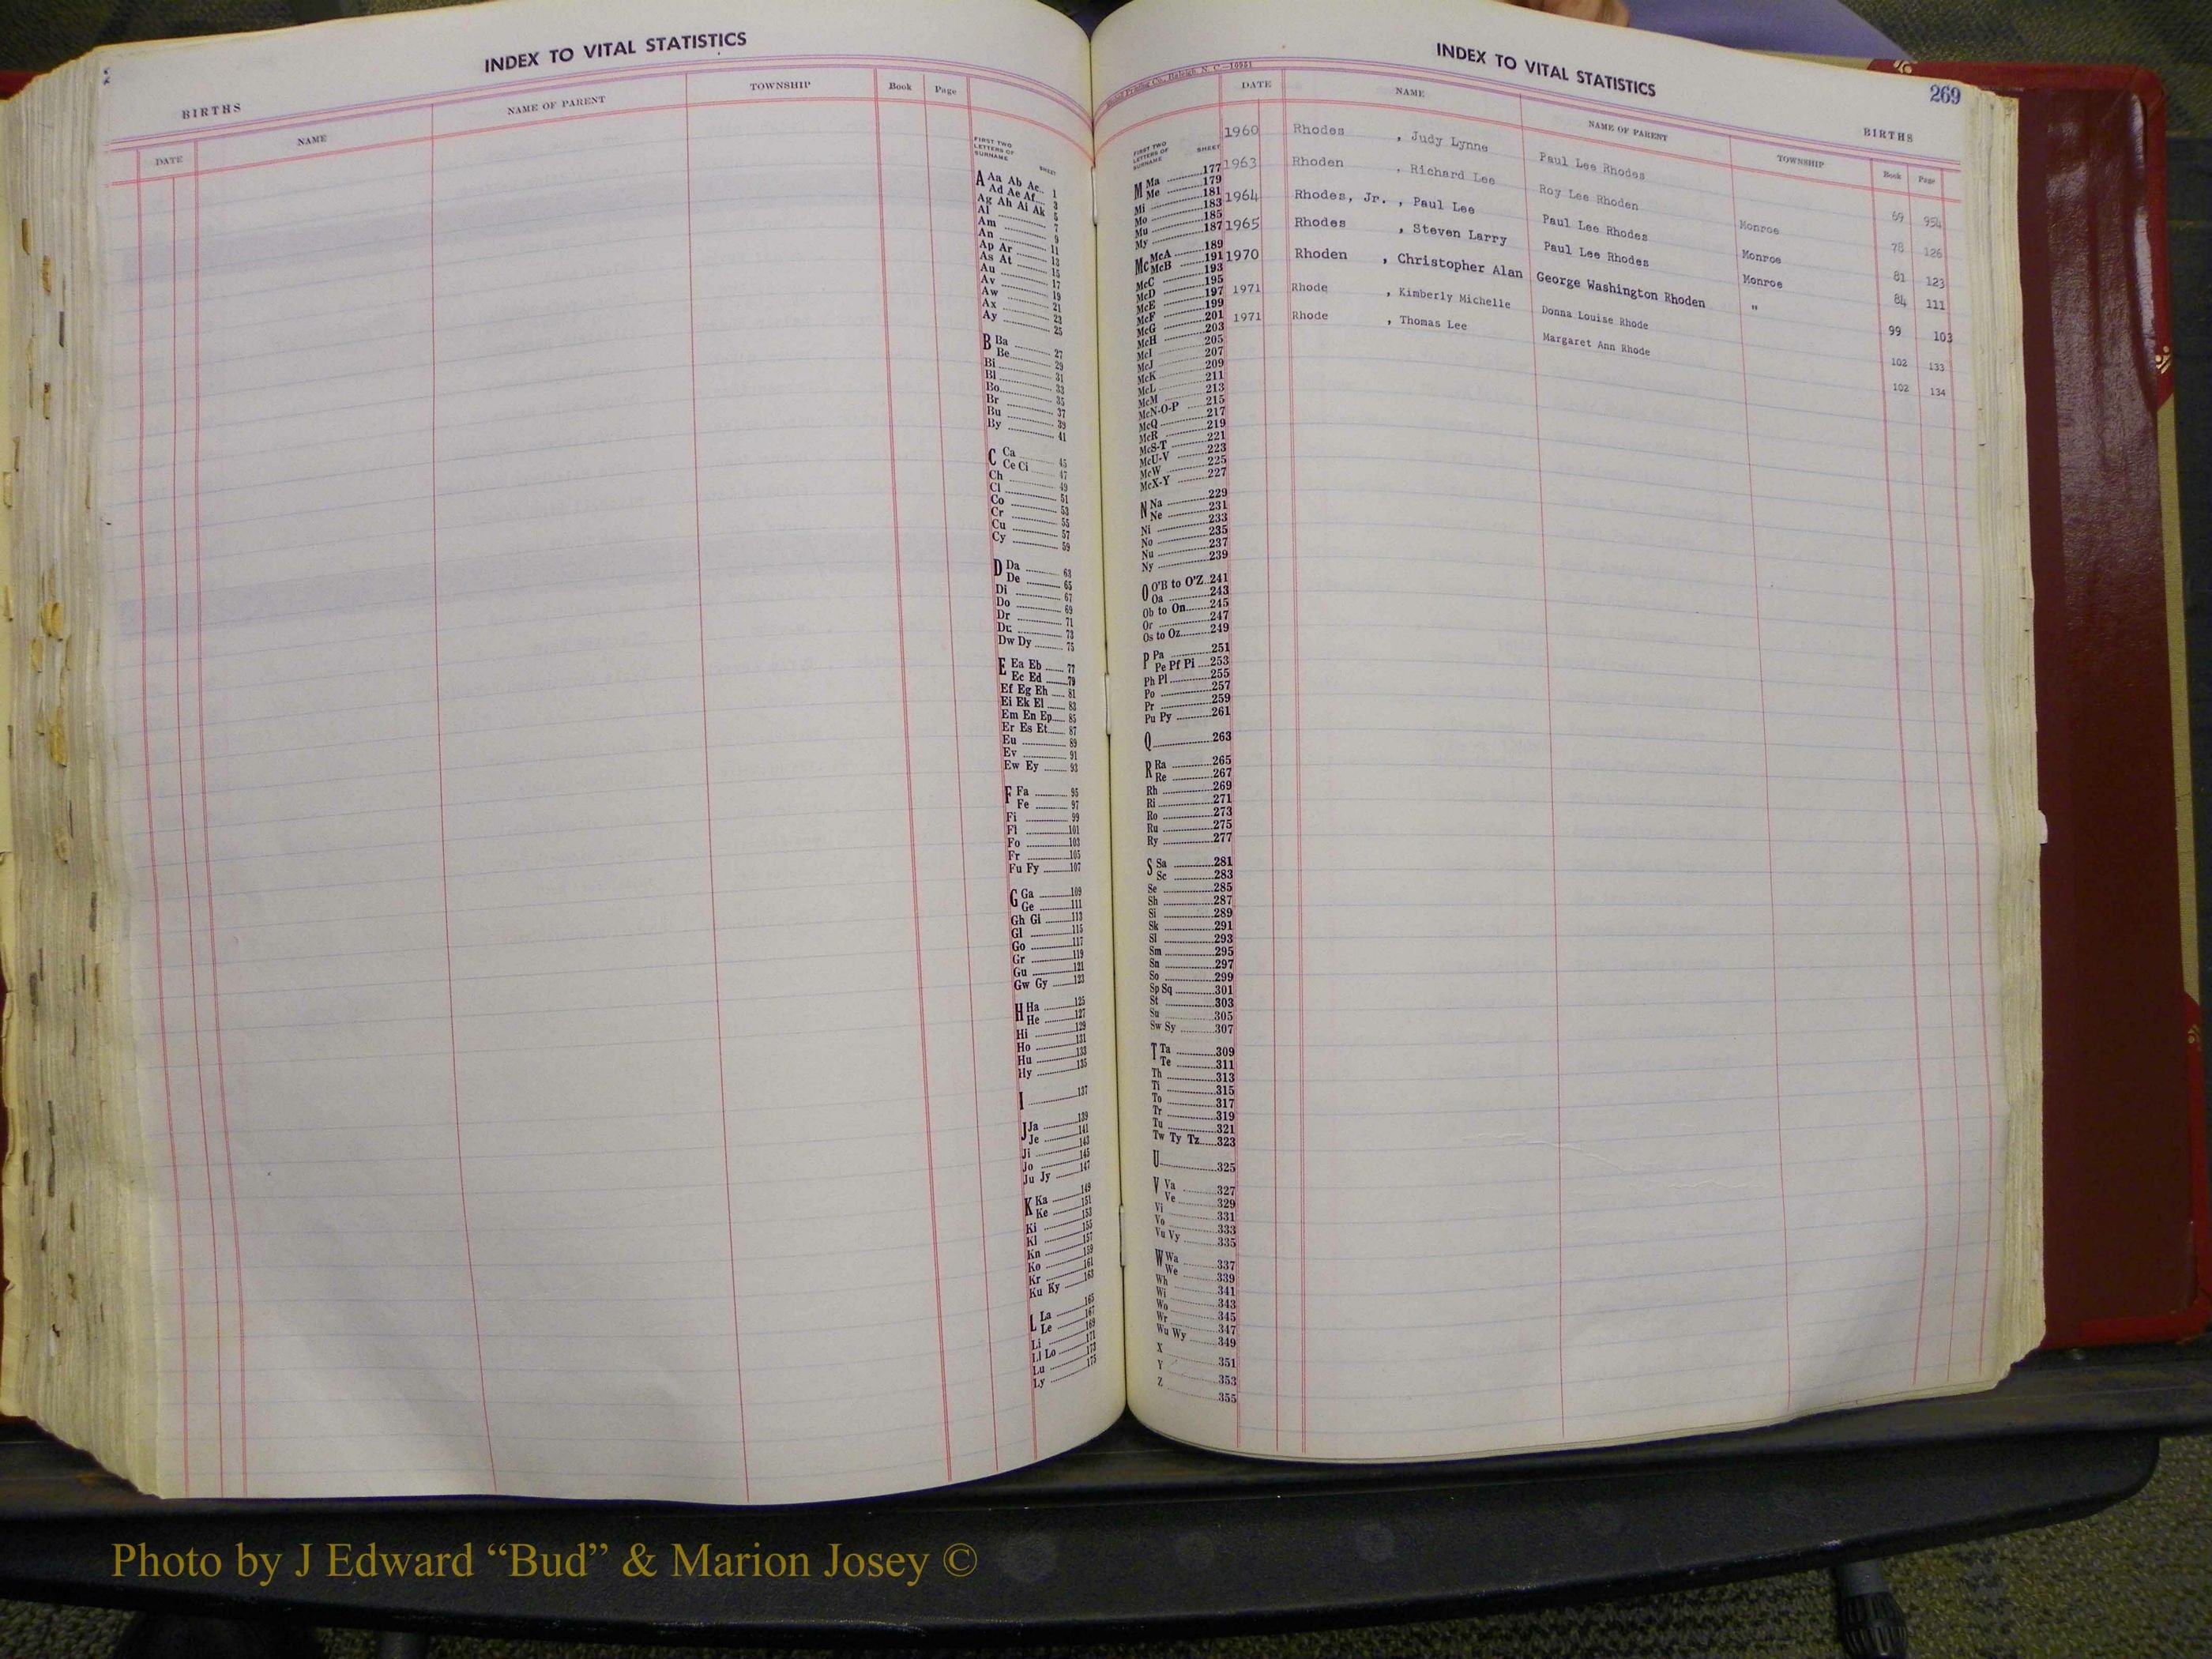 INDEX TO VITAL STATISTICS
BIRTHS
DATE NAME NAME OF PARENT TOWNSHIP Book Page
FIRST TWO LETTERS OF SURNAME SHEET
A Aa Ab Ac 1
Ad Ae Af 3
Ag Ah Ai Ak 5
Al 7
Am 9
An 11
Ap Ar 13
As At 15
Au 17
Av 19
Aw 21
Ax 23
Ay 25
B Ba 27
Be 29
Bi 31
Bl 33
Bo 35
Br 37
Bu 39
By 41
C Ca 45
Ce Ci 47
Ch 49
Cl 51
Co 53
Cr 55
Cu 57
Cy 59
D Da 63
De 65
Di 67
Do 69
Dr 71
Du 73
Dw Dy 75
E Ea Eb 77
Ec Ed 79
Ef Eg Eh 81
Ei Ek El 83
Em En Ep 85
Er Es Et 87
Eu 89
Ev 91
Ew Ey 93
F Fa 95
Fe 97
Fi 99
Fl 101
Fo 103
Fr 105
Fu Fy 107
G Ga 109
Ge 111
Gh Gi 113
Gl 115
Go 117
Gr 119
Gu 121
Gw Gy 123
H Ha 125
He 127
Hi 129
Ho 131
Hu 133
Hy 135
I 137
J Ja 139
Je 141
Ji 143
Jo 145
Ju Jy 147
K Ka 149
Ke 151
Ki 153
Kl 155
Kn 157
Ko 159
Kr 161
Ku Ky 163
L La 165
Le 167
Li 169
Ll Lo 171
Lu 173
Ly 175
INDEX TO VITAL STATISTICS
269
BIRTHS
Printing Co., Raleigh, N. C.—10951
DATE NAME NAME OF PARENT TOWNSHIP Book Page
1960 Rhodes , Judy Lynne Paul Lee Rhodes Monroe 69 954
1963 Rhoden , Richard Lee Roy Lee Rhoden Monroe 78 126
1964 Rhodes, Jr. , Paul Lee Paul Lee Rhodes Monroe 81 123
1965 Rhodes , Steven Larry Paul Lee Rhodes " 84 111
1970 Rhoden , Christopher Alan George Washington Rhoden 99 103
1971 Rhode , Kimberly Michelle Donna Louise Rhode 102 133
1971 Rhode , Thomas Lee Margaret Ann Rhode 102 134
FIRST TWO LETTERS OF SURNAME SHEET
M Ma 177
Me 179
Mi 181
Mo 183
Mu 185
My 187
Mc McA 189
McB 191
McC 193
McD 195
McE 197
McF 199
McG 201
McH 203
McI 205
McJ 207
McK 209
McL 211
McM 213
McN-O-P 215
McQ 217
McR 219
McS-T 221
McU-V 223
McW 225
McX-Y 227
N Na 229
Ne 231
Ni 233
No 235
Nu 237
Ny 239
O O'B to O'Z 241
Oa 243
Ob to On 245
Or 247
Os to Oz 249
P Pa 251
Pe Pf Pi 253
Ph Pl 255
Po 257
Pr 259
Pu Py 261
Q 263
R Ra 265
Re 267
Rh 269
Ri 271
Ro 273
Ru 275
Ry 277
S Sa 281
Sc 283
Se 285
Sh 287
Si 289
Sk 291
Sl 293
Sm 295
Sn 297
So 299
Sp Sq 301
St 303
Su 305
Sw Sy 307
T Ta 309
Te 311
Th 313
Ti 315
To 317
Tr 319
Tu 321
Tw Ty Tz 323
U 325
V Va 327
Ve 329
Vi 331
Vo 333
Vu Vy 335
W Wa 337
We 339
Wh 341
Wi 343
Wo 345
Wr 347
Wu Wy 349
X 351
Y 353
Z 355
Photo by J Edward “Bud” & Marion Josey ©